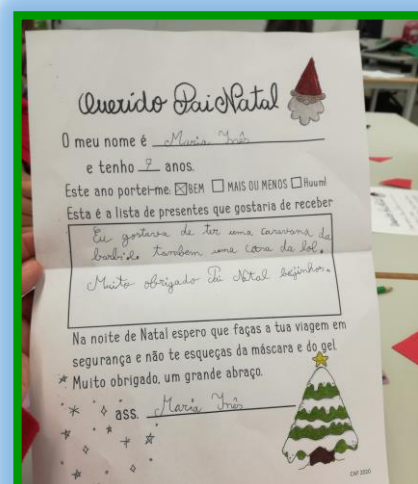 Querido Pai Natal
O meu nome é Maria Inês
e tenho 9 anos.
Este ano portei-me: ☒BEM ☐ MAIS OU MENOS ☐Huum!
Esta é a lista de presentes que gostaria de receber
Eu gostava de ter uma caravana da
também uma casa da lol.
Muito obrigado Pai Natal beijinhos.
Na noite de Natal espero que faças a tua viagem em
segurança e não te esqueças da máscara e do gel
Muito obrigado, um grande abraço.
ass. Maria Inês